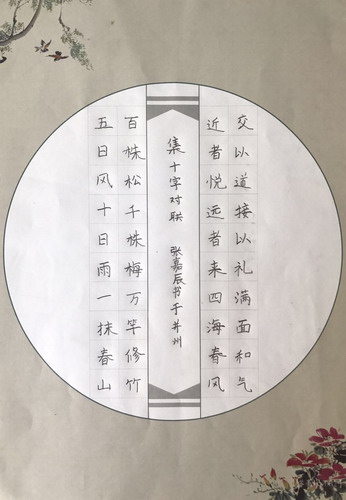 交以道接以礼满面和气
近者悦远者来四海春风
集十字对联 张嘉辰书于并州
百株松千株梅万竿修竹
五日风十日雨一抹春山